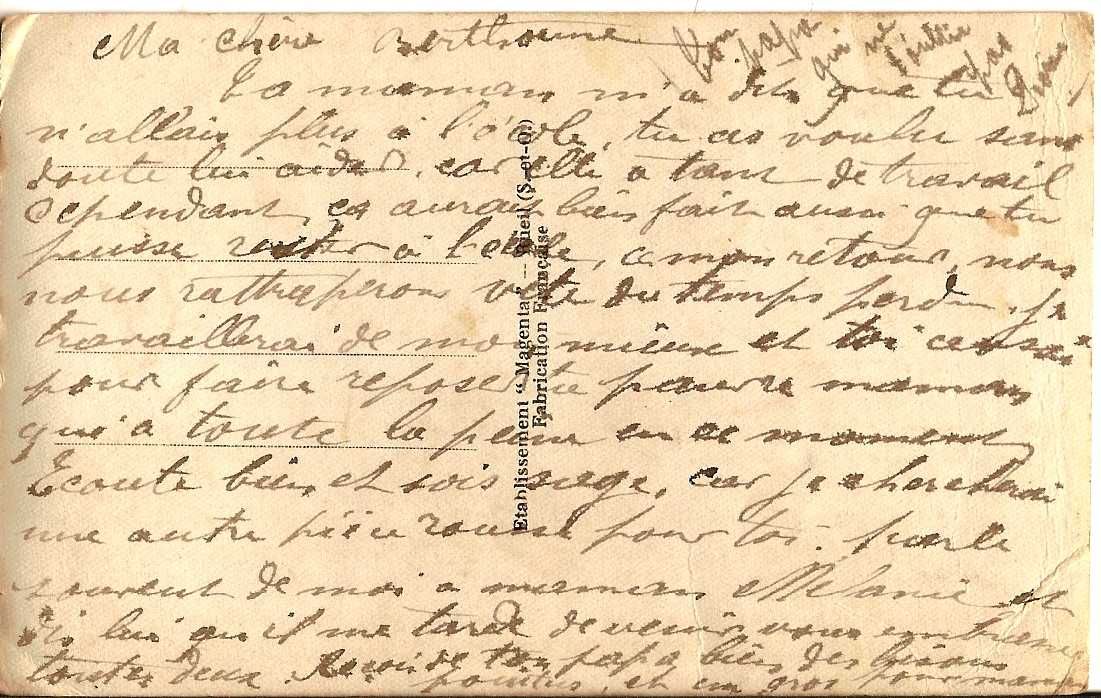 Ma chère Berthoune
Ta maman m'a dit que tu
n'allais plus à l'école, tu as voulu sans
doute lui aider, car elle a tant de travail
Cependant, ça aurait bien fait aussi que tu
puisse rester à l'école, a mon retour, nous
nous rattraperons vite du temps perdu, je
travaillerai de mon mieux et toi aussi
pour faire reposer ta pauvre maman
qui a toute la peine en ce moment
Ecoute bien et sois sage, car je chercherai
une autre pièce rousse pour toi. parle
souvent de moi a maman Mélanie et
dis lui qu'il me tarde de venir vous embrasser
toutes deux. Reçois de ton papa bien des bisous
et un gros pour maman
Ton papa
qui ne
t'oublie
pas
Etablissement "Magenta" — Rueil (S.-et-O.)
Fabrication Française